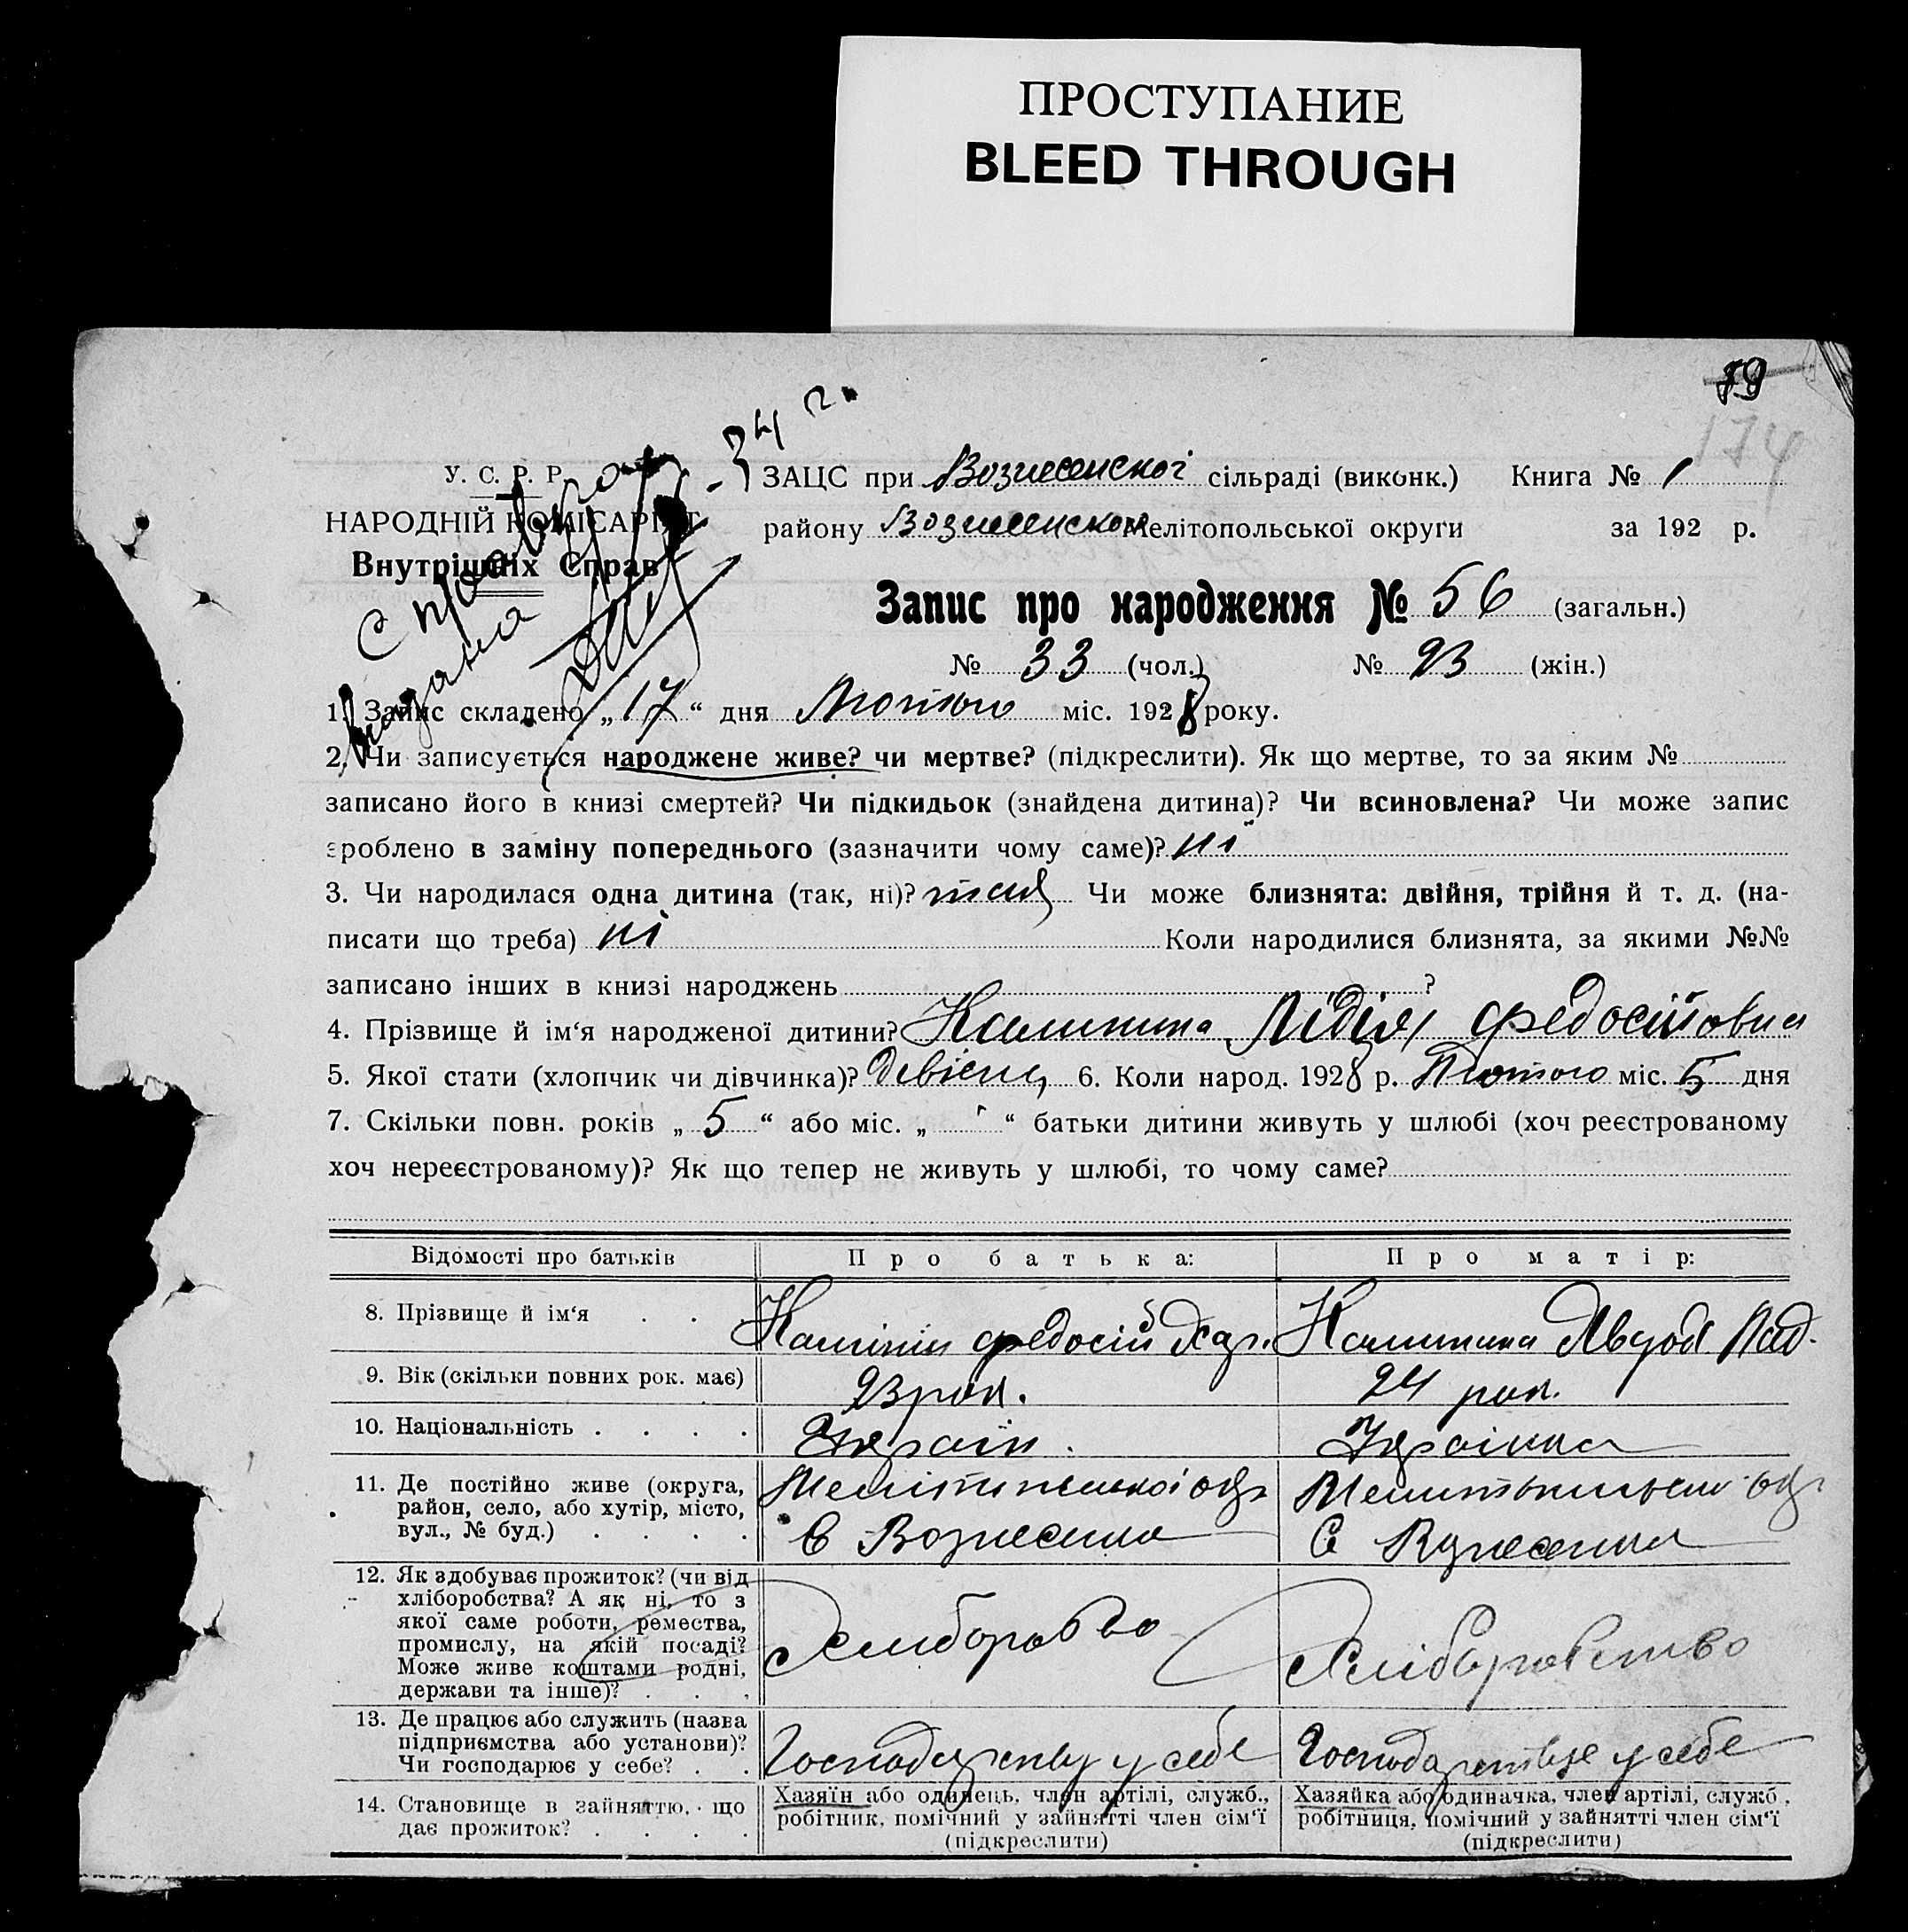 ПРОСТУПАНИЕ
BLEED THROUGH
79
174
У. С. Р. Р.
НАРОДНІЙ КОМІСАРІЯТ
Внутрішніх Справ
Справка
видана
34 г.
ЗАЦС при Вознесенскої сільраді (виконк.) Книга № 1
району Вознесенскои Мелітопольської округи за 192 р.
Запис про народження № 56 (загальн.)
№ 33 (чол.) № 23 (жін.)
1. Запис складено „17“ дня Лютого міс. 1928 року.
2. Чи записується народжене живе? чи мертве? (підкреслити). Як що мертве, то за яким №
записано його в книзі смертей? Чи підкидьок (знайдена дитина)? Чи всиновлена? Чи може запис
зроблено в заміну попереднього (зазначити чому саме)? ні
3. Чи народилася одна дитина (так, ні)? так Чи може близнята: двійня, трійня й т. д. (на-
писати що треба) ні Коли народилися близнята, за якими №№
записано інших в книзі народжень ?
4. Прізвище й ім‘я народженої дитини? Калинина Лідія Федосійовна
5. Якої стати (хлопчик чи дівчинка)? 6. Коли народ. 1928 р. Лютого міс. 5 дня
7. Скільки повн. років „5“ або міс. „ “ батьки дитини живуть у шлюбі (хоч реєстрованому
хоч нереєстрованому)? Як що тепер не живуть у шлюбі, то чому саме?
Відомості про батьків Про батька: Про матір:
8. Прізвище й ім‘я . . . Калінін Федосій Калинина Явдок
9. Вік (скільки повних рок. має) 23 рок. 24 рок.
10. Національність . . . . Україн. Українка
11. Де постійно живе (округа,
район, село, або хутір, місто,
вул., № буд.) . . . .
окр
С Вознесенка
окр
С Вознесенка
12. Як здобуває прожиток? (чи від
хліборобства? А як ні, то з
якої саме роботи, ремества,
промислу, на якій посаді?
Може живе коштами родні,
держави та інше)? . . .
Хліборобство
13. Де працює або служить (назва
підприємства або установи)?
Чи господарює у себе? . .
у себе
у себе
14. Становище в зайняттю, що
дає прожиток? . . . .
Хазяїн або одинець, член артілі, служб.,
робітник, помічний у зайнятті член сім‘ї
(підкреслити)
Хазяйка або одиначка, член артілі, служб.,
робітниця, помічний у зайнятті член сім‘ї
(підкреслити)